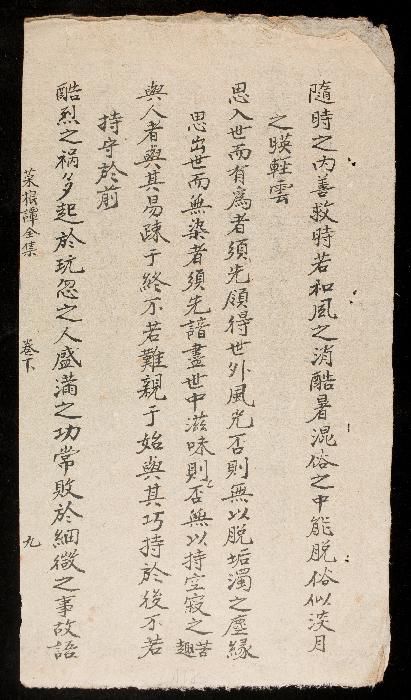 隨時之內善救時若和風之消酷暑混俗之中能脫俗似淡月
之暎輕雲
思入世而有為者須先領得世外風光否則無以脫垢濁之塵緣
思出世而無染者須先諳盡世中滋味則否無以持空寂之苦趣
與人者與其易踈于終不若難親于始與其巧持於後不若
持守於前
酷烈之禍多起於玩忽之人盛滿之功常敗於細微之事故語
菜根譚全集 卷下 九